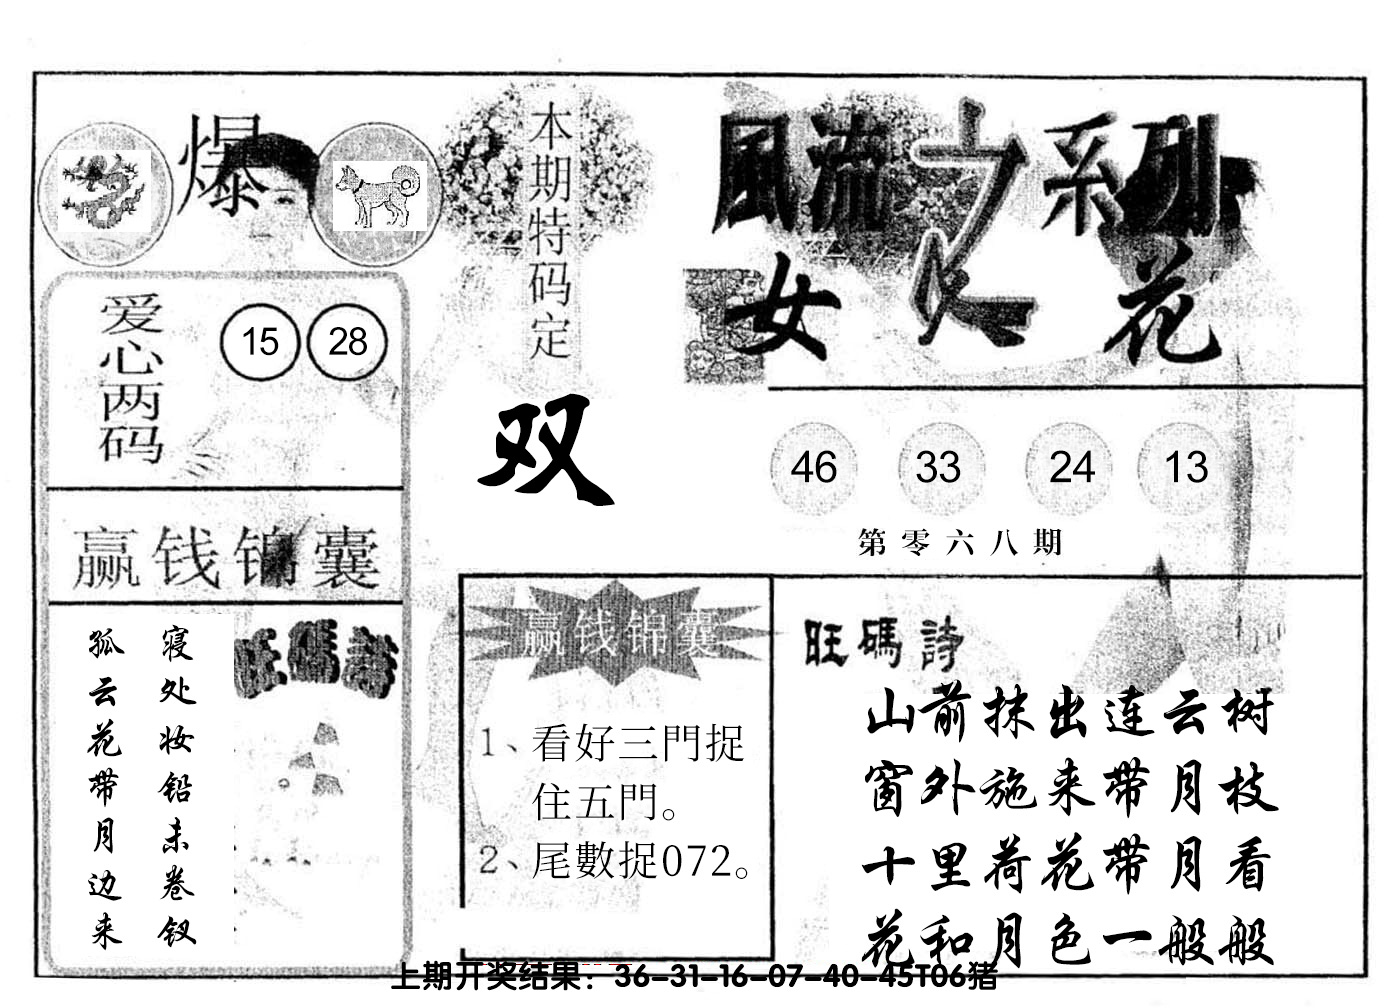 爆
本期特码定
双
風流之系列
女人花
爱心两码
15 28
46 33 24 13
第零六八期
赢钱锦囊
旺碼詩
寝处妆铅未卷钗
孤云花带月边来
赢钱锦囊
1、看好三門捉
住五門。
2、尾數捉072。
旺碼詩
山前抹出连云树
窗外施来带月枝
十里荷花带月看
花和月色一般般
上期开奖结果：36-31-16-07-40-45T06猪